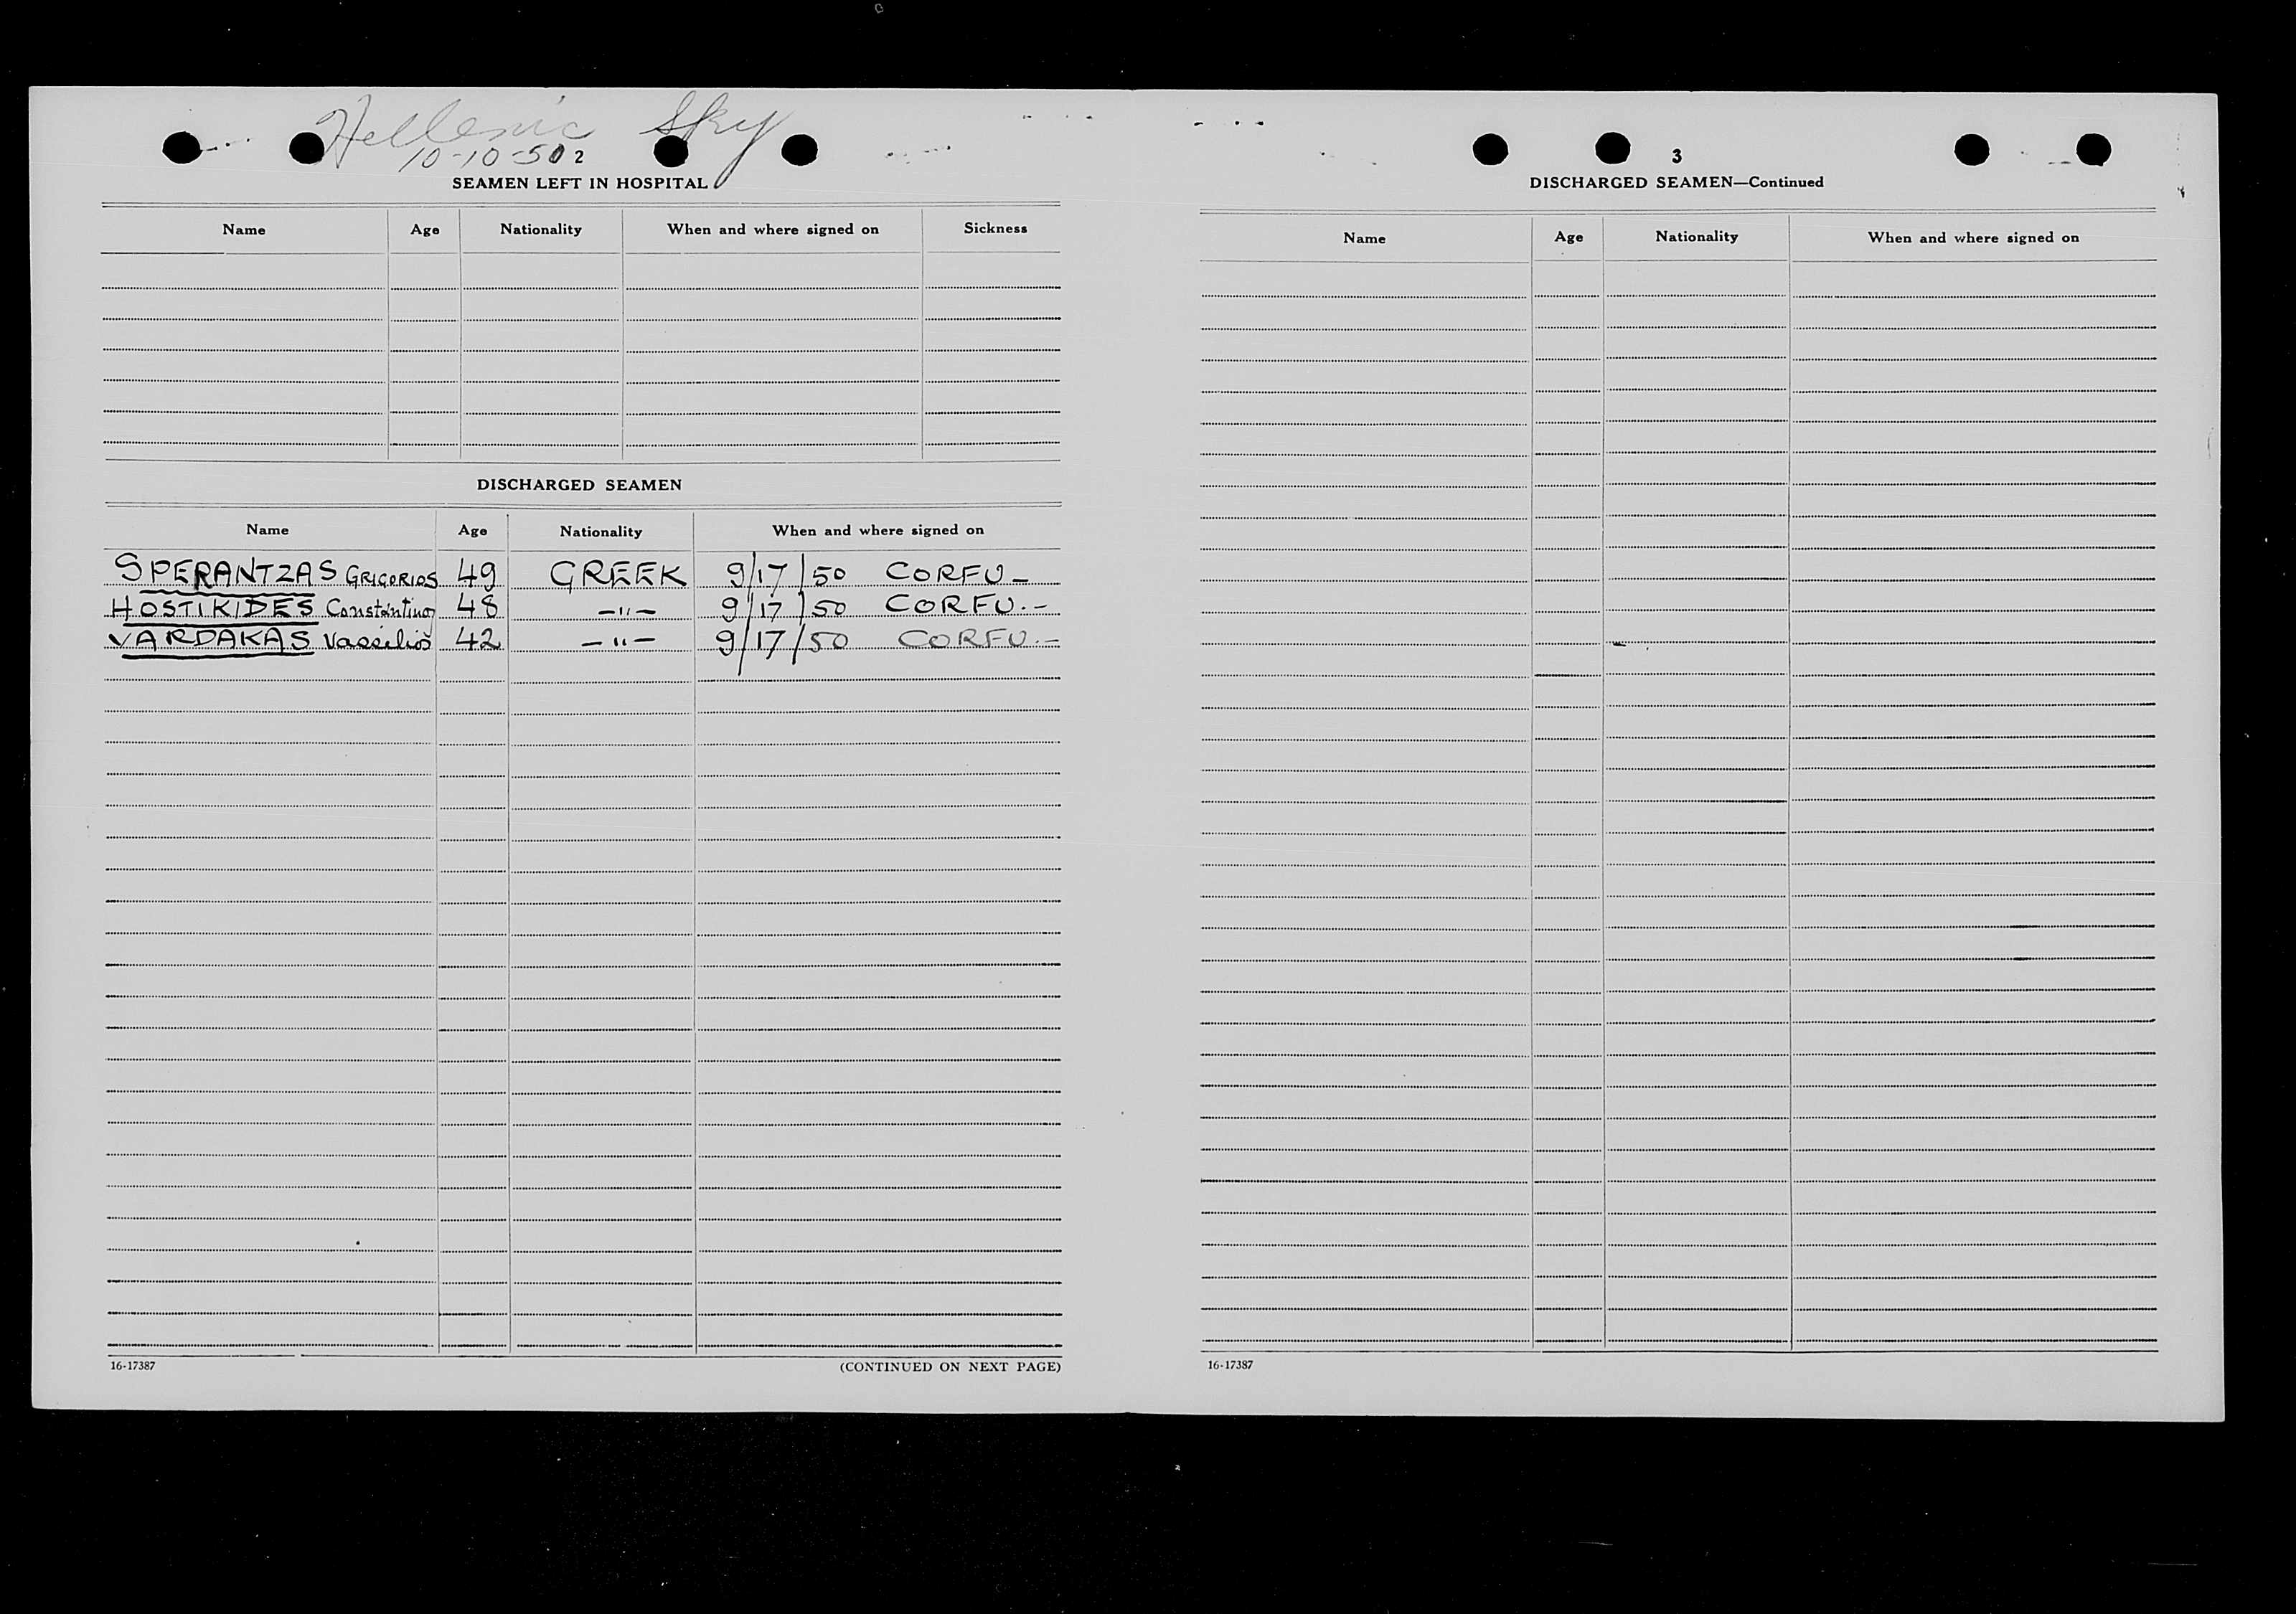 Hellenic Sky
10-10-50 2
SEAMEN LEFT IN HOSPITAL
Name Age Nationality When and where signed on Sickness
DISCHARGED SEAMEN
Name Age Nationality When and where signed on
SPERANTZAS GRIGORIOS 49 GREEK 9/17/50 CORFU -
HOSTIKIDES Constantinos 48 -"- 9/17/50 CORFU.-
VARDAKAS Vassilios 42 -"- 9/17/50 CORFU.-
16-17387 (CONTINUED ON NEXT PAGE)
3
DISCHARGED SEAMEN—Continued
Name Age Nationality When and where signed on
16-17387